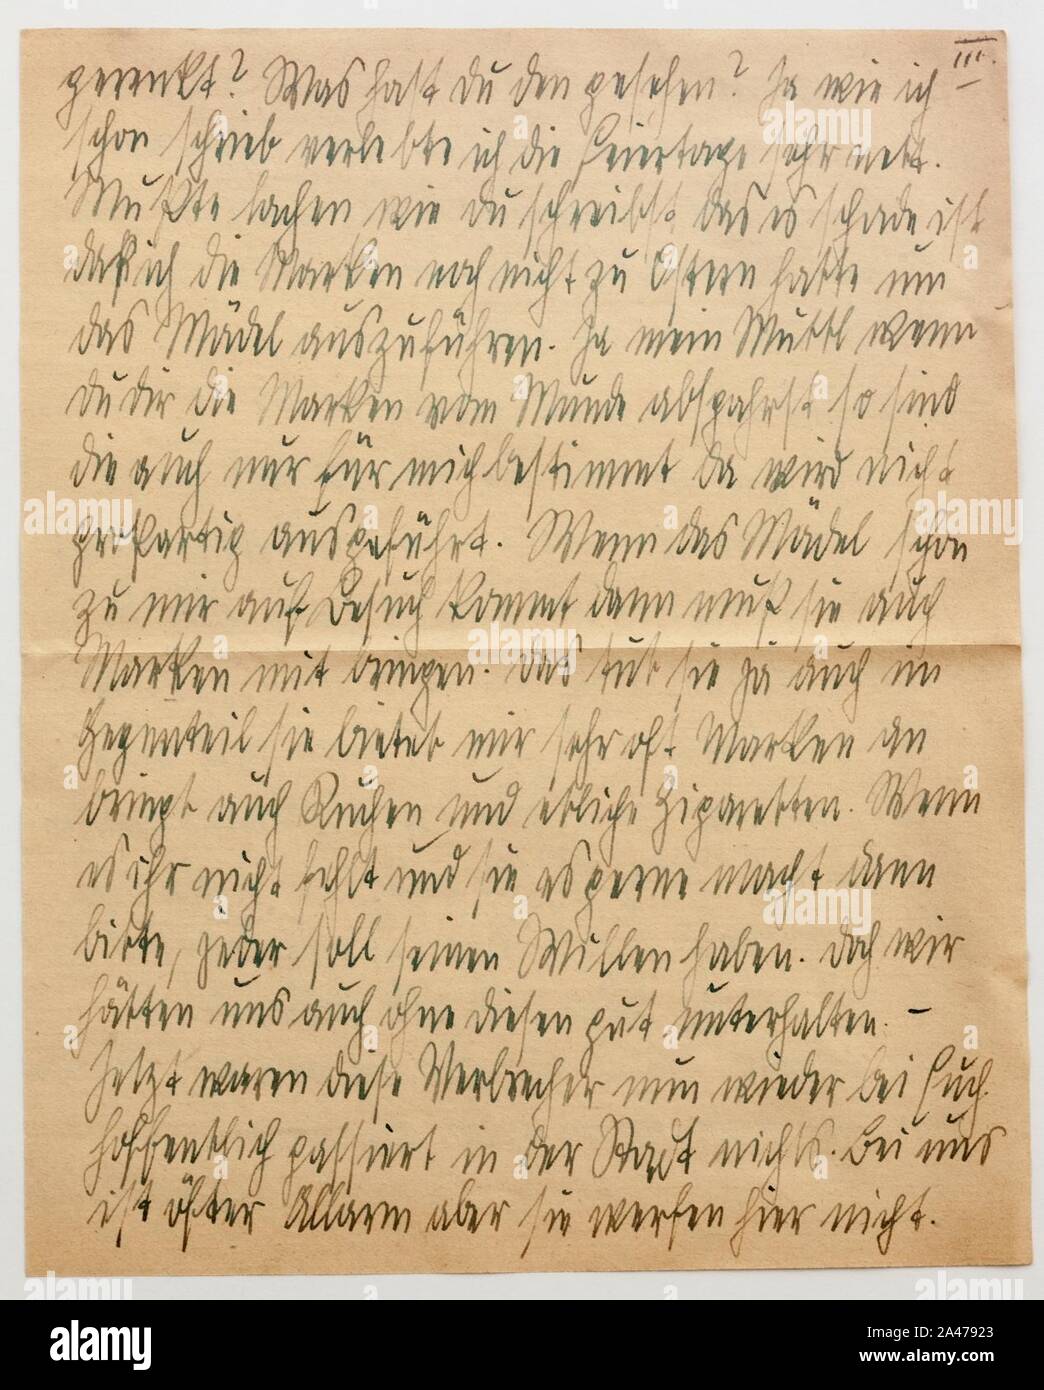 III.
gerenkt? Was hast du den gesehen? Ja wie ich
schon schrieb verlebte ich die Feiertage sehr nett.
Mußte lachen wie du schreibst das es schade ist
daß ich die Marken noch nicht zu Ostern hatte um
das Mädel auszuführen. Ja mein Muttl wenn
du dir die Marken vom Munde abspahrst so sind
die auch nur für mich bestimmt da wird nicht
großartig ausgeführt. Wenn das Mädel schon
zu mir auf Besuch kommt dann muß sie auch
Marken mit bringen. Das tut sie ja auch im
Gegenteil sie bietet mir sehr oft Marken an
bringt auch Kuchen und etliche Zigaretten. Wenn
es ihr nicht fehlt und sie es gerne macht dann
bitte, jeder soll seinen Willen haben. Doch wir
hätten uns auch ohne diesen gut unterhalten. –
Jetzt waren diese Verbrecher nun wieder bei Euch
hoffentlich passiert in der Stadt nichts. Bei uns
ist öfter Allarm aber sie werfen hier nicht.
alamy
Image ID: 2A47923
www.alamy.com